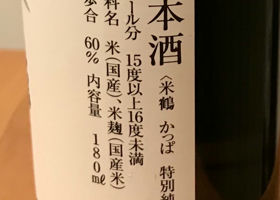 本酒
〈米鶴 かっぱ 特別純
ール分 15度以上16度未満
料名 米(国産)、米麹(国産米)
歩合 60% 内容量 180ml